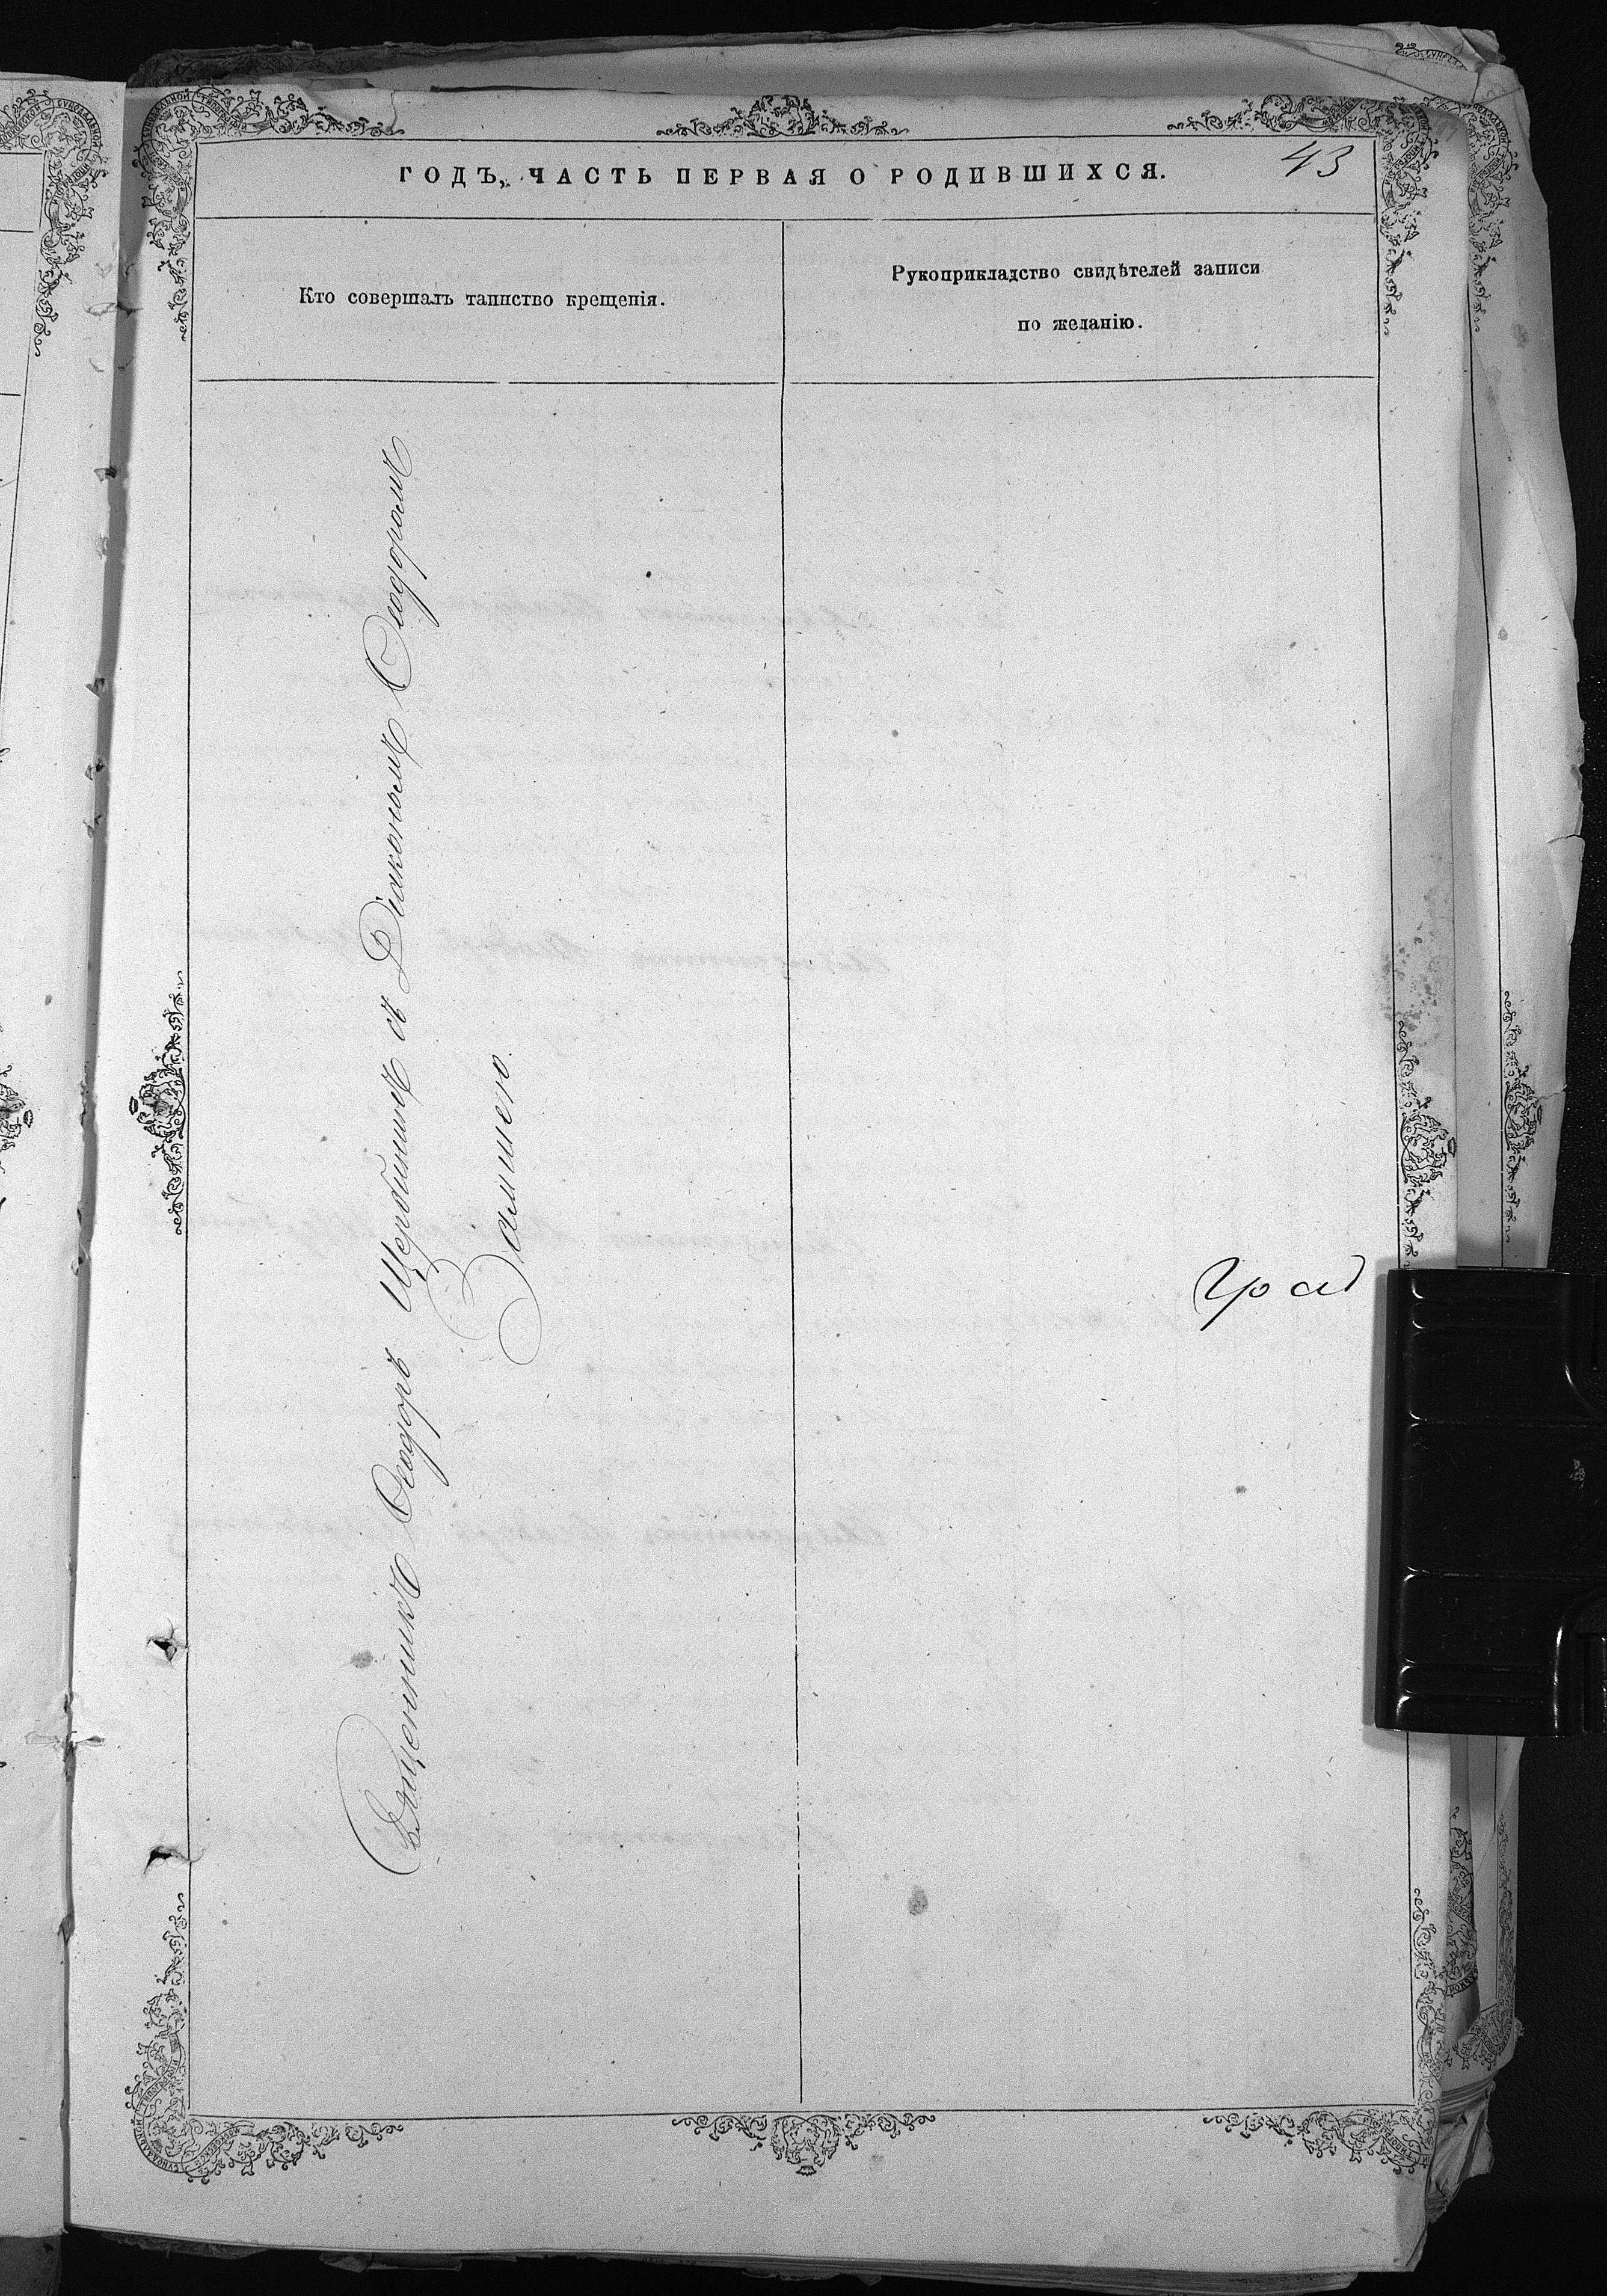 ГОДЪ, ЧАСТЬ ПЕРВАЯ О РОДИВШИХСЯ.
43
Кто совершалъ таинство крещенія.
Рукоприкладство свидѣтелей записи
по желанію.
Священникъ Ѳеодоръ Щербининъ съ Діакономъ Ѳеодоромъ